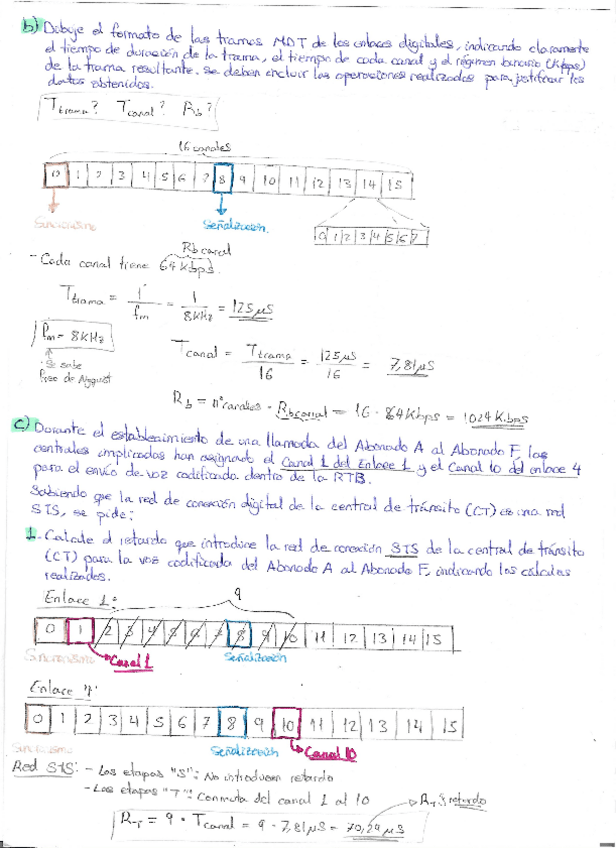 b) Dibuje el formato de las tramas MDT de los enlaces digitales, indicando claramente
el tiempo de duración de la trama, el tiempo de cada canal y el régimen binario (Kbps)
de la trama resultante. Se deben incluir las operaciones realizadas para justificar los
datos obtenidos.
Ttrama? Tcanal? Rb?
16 canales
0 1 2 3 4 5 6 7 8 9 10 11 12 13 14 15
Sincronismo Señalización
0 1 2 3 4 5 6 7
Rb canal
- Cada canal tiene 64 Kbps.
Ttrama = 1 / fm = 1 / 8KHz = 125 µS
fm = 8KHz
Tcanal = Ttrama / 16 = 125 µS / 16 = 7,81 µS
Se sabe
Rb = nº canales · Rb canal = 16 · 64 Kbps = 1024 K.bps
c) Durante el establecimiento de una llamada del Abonado A al Abonado F, las
centrales implicadas han asignado el Canal 1 del Enlace 1 y el Canal 10 del enlace 4
para el envío de voz codificada dentro de la RTB.
Sabiendo que la red de conexión digital de la central de tránsito (CT) es una red
STS, se pide:
1. Calcule el retardo que introduce la red de conexión STS de la central de tránsito
(CT) para la voz codificada del Abonado A al Abonado F, indicando los cálculos
realizados.
Enlace 1: 9
0 1 2 3 4 5 6 7 8 9 10 11 12 13 14 15
Sincronismo Canal 1 Señalización
Enlace 4:
0 1 2 3 4 5 6 7 8 9 10 11 12 13 14 15
Señalización Canal 10
Red STS: - Las etapas "S": No introducen retardo
- Las etapas "T": Conmuta del canal 1 al 10
RT = 9 · Tcanal = 9 · 7,81 µS = 70,29 µS